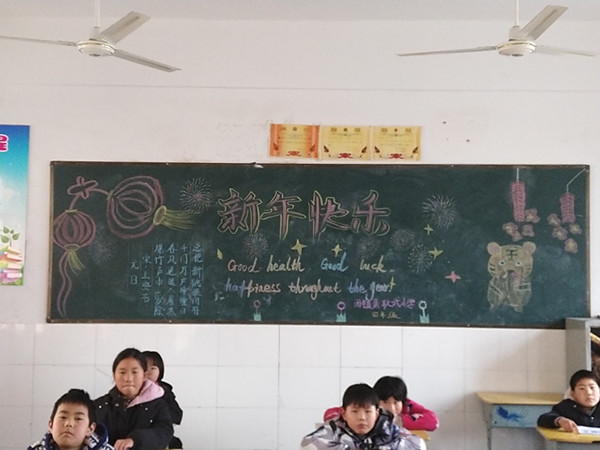 新年快乐
Good health Good luck
happiness throughout the year
元日
宋 王安石
爆竹声中一岁除
春风送暖入屠苏
千门万户曈曈日
总把新桃换旧符
四年级
王